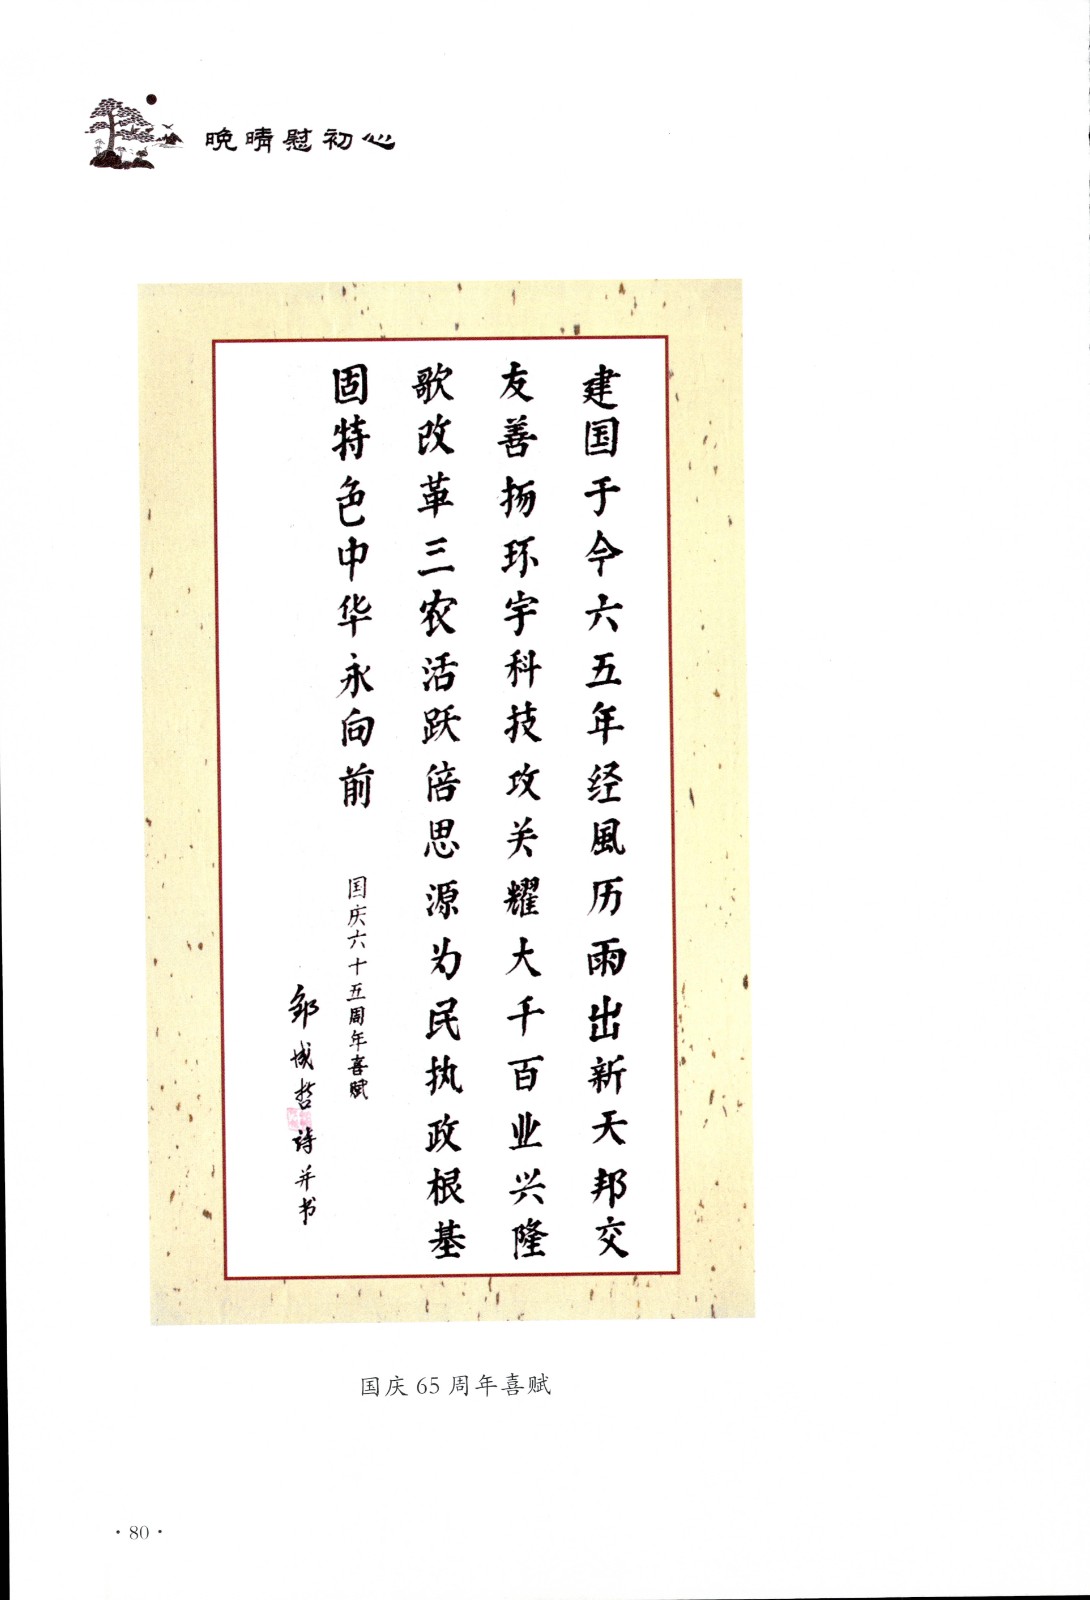 晚晴慰初心
建国于今六五年经風历雨出新天邦交
友善扬环宇科技攻关耀大千百业兴隆
歌改革三农活跃倍思源为民执政根基
固特色中华永向前
国庆六十五周年喜赋
邹成哲诗并书
国庆 65 周年喜赋
·80·